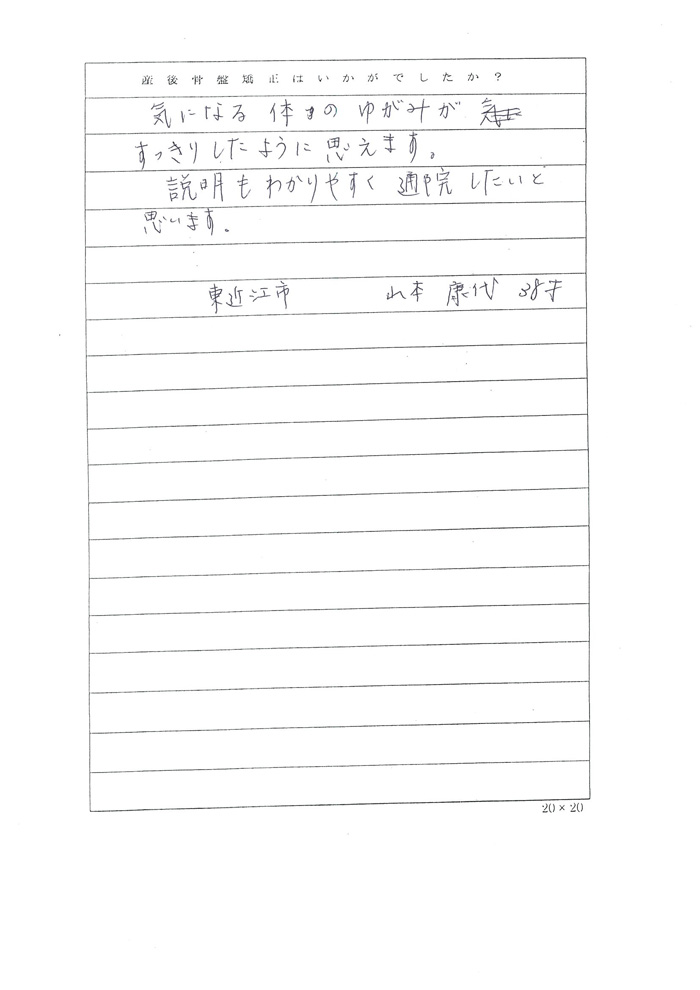 産後骨盤矯正はいかがでしたか？
気になる 体の ゆがみが
すっきりしたように思えます。
説明もわかりやすく 通院したいと
思います。
東近江市 山本 康代 38才
20×20